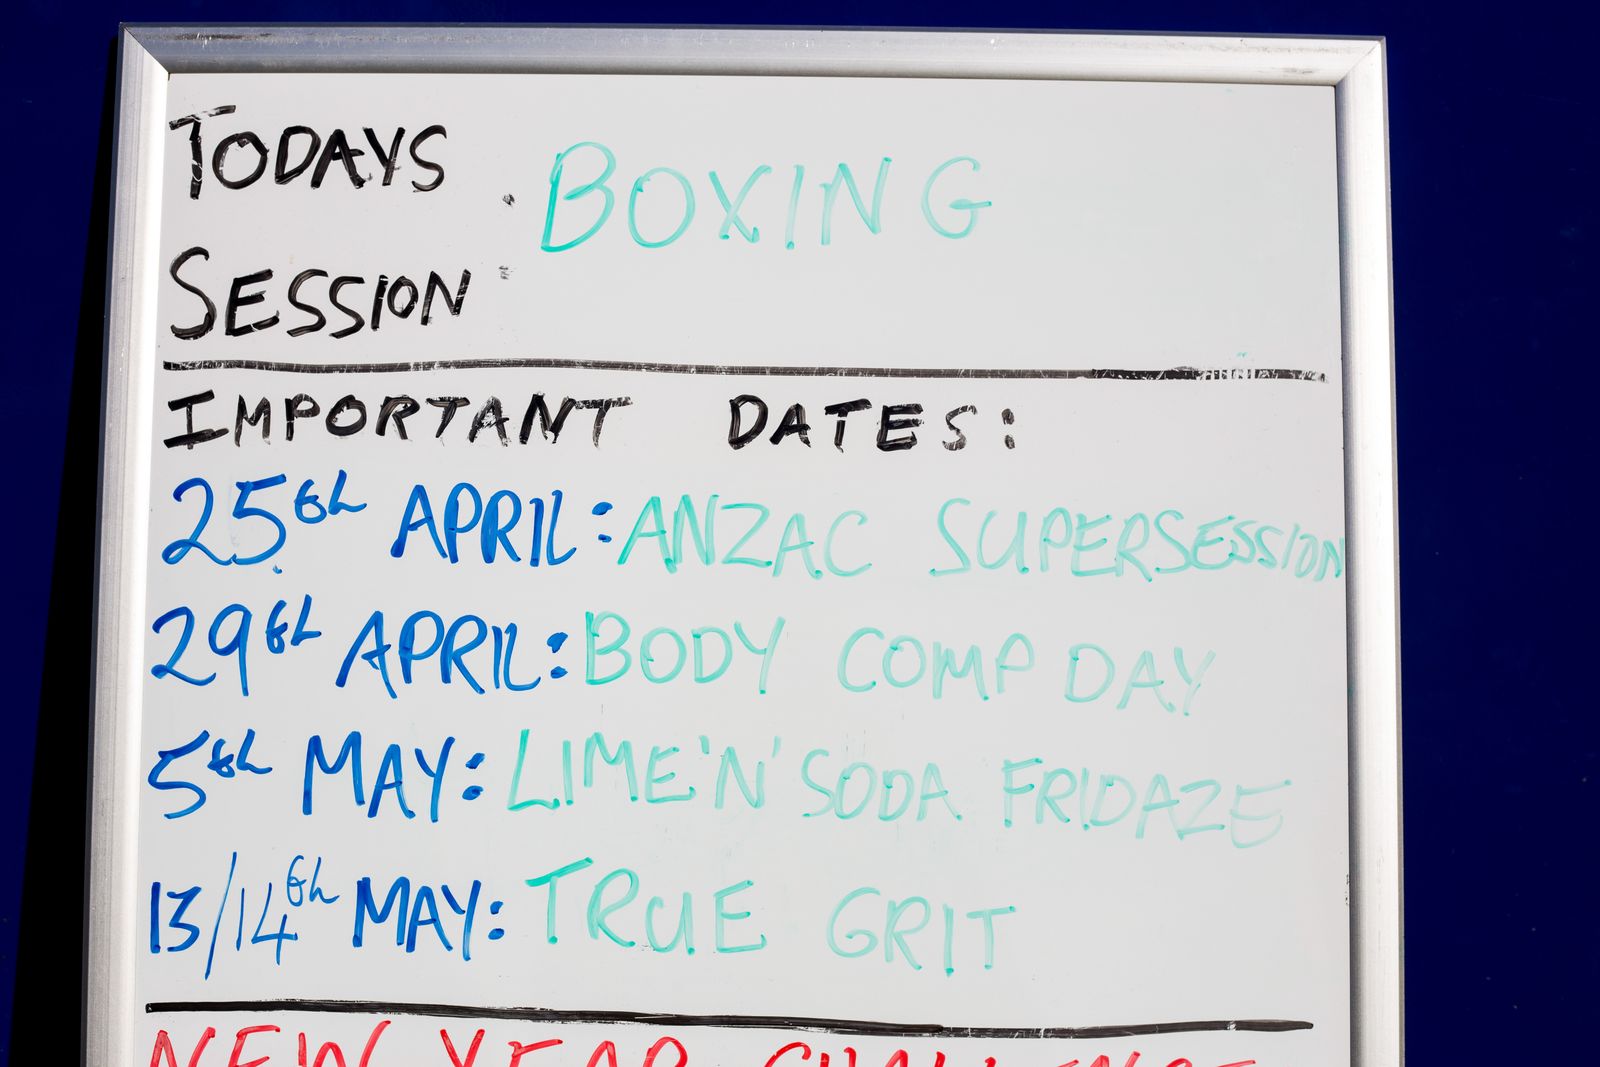 TODAYS
SESSION : BOXING
IMPORTANT DATES:
25th APRIL: ANZAC SUPERSESSION
29th APRIL: BODY COMP DAY
5th MAY: LIME 'N' SODA FRIDAZE
13/14th MAY: TRUE GRIT
NEW YEAR CHALLENGE